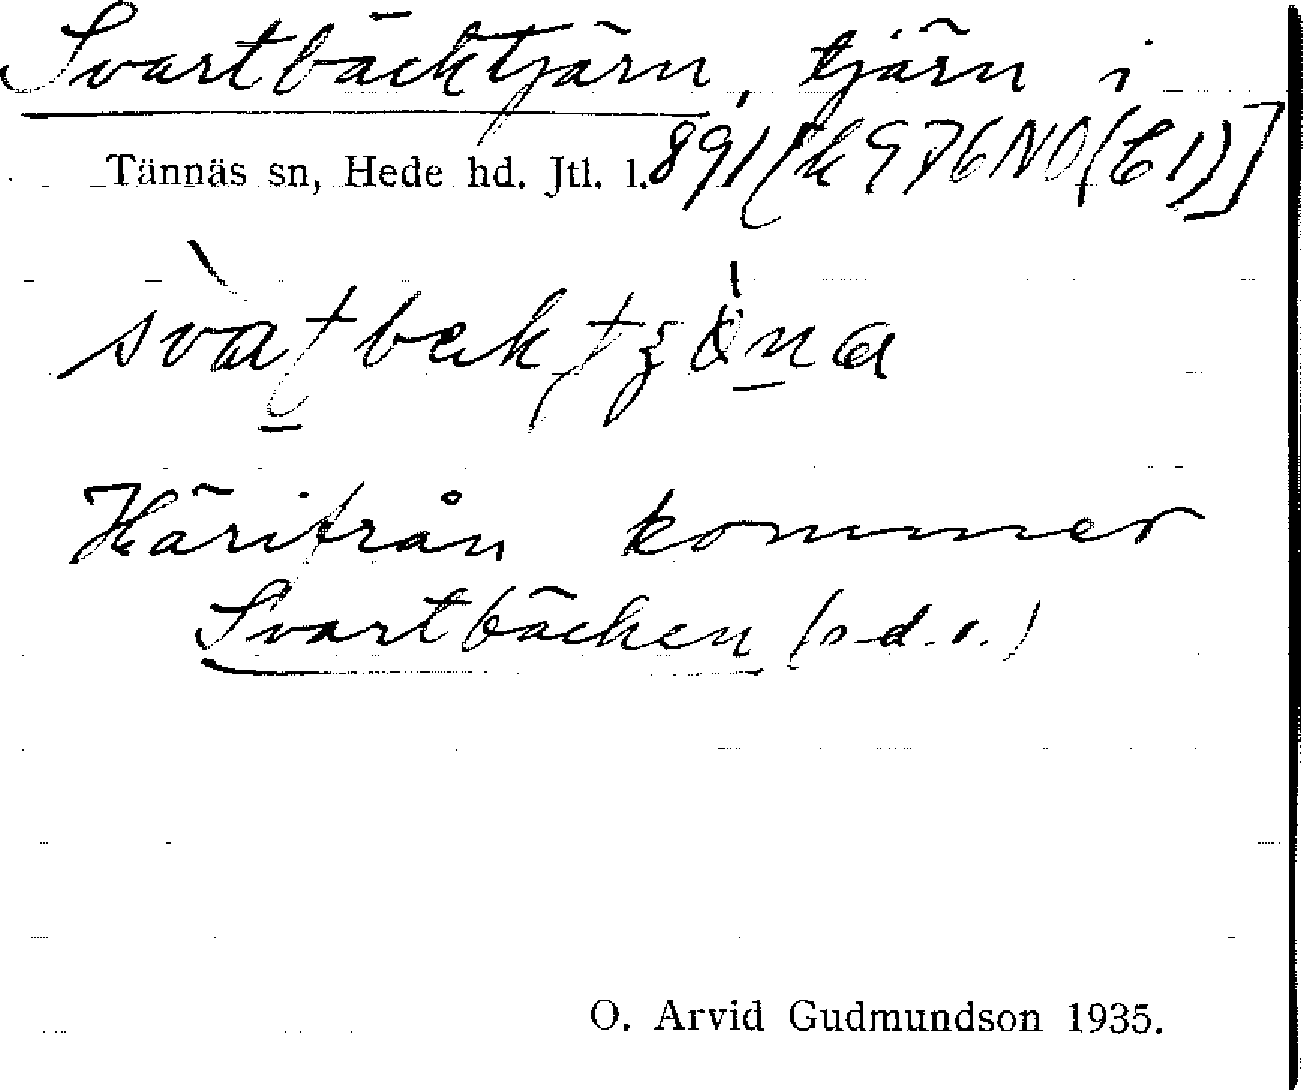 Svartbäcktjärn, tjärn i
Tännäs sn, Hede hd. Jtl. l. 891 [k 976 NO (61)]
Härifrån kommer
Svartbäcken (s.d.o.)
O. Arvid Gudmundson 1935.